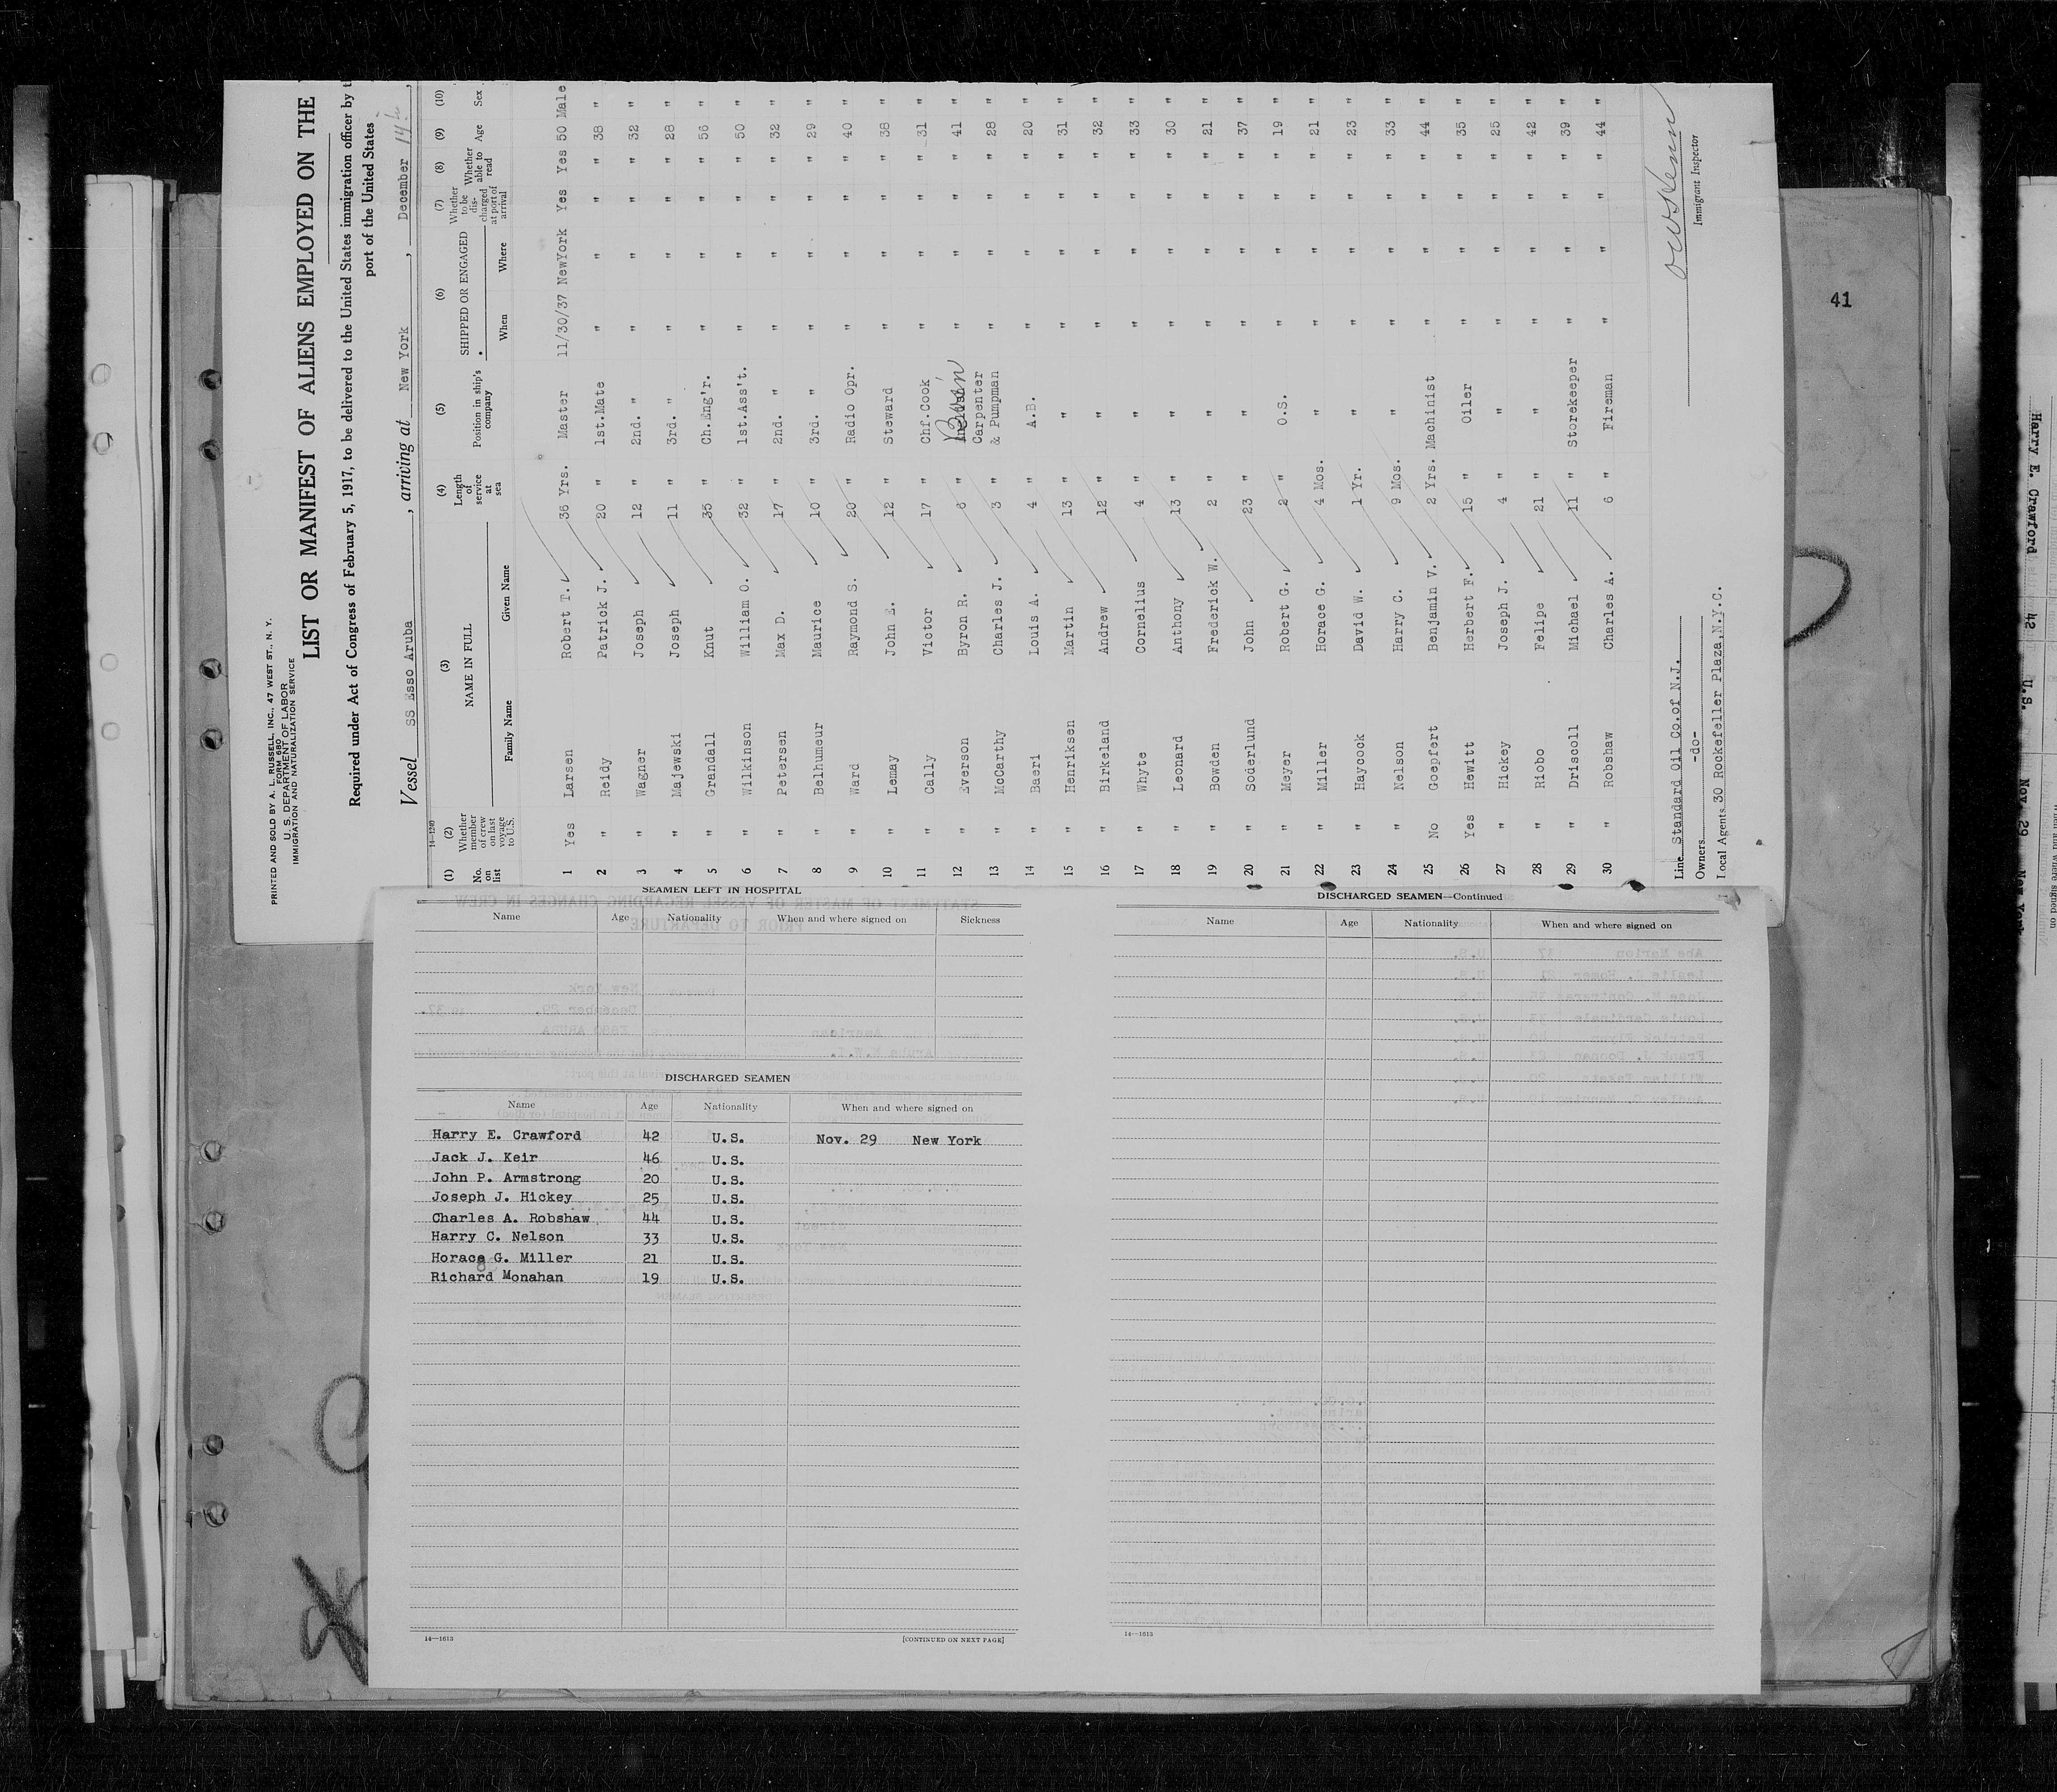 PRINTED AND SOLD BY A. L. RUSSELL, INC., 47 WEST ST., N. Y.
FORM 680
U. S. DEPARTMENT OF LABOR
IMMIGRATION AND NATURALIZATION SERVICE
LIST OR MANIFEST OF ALIENS EMPLOYED ON THE
Required under Act of Congress of February 5, 1917, to be delivered to the United States immigration officer by
port of the United States
Vessel SS Esso Aruba, arriving at New York, December 14th,
14—1240
(1) (2) (3) (4) (5) (6) (7) (8) (9) (10)
No. on list Whether member of crew on last voyage to U.S. NAME IN FULL Family Name Given Name Length of service at sea Position in ship's company SHIPPED OR ENGAGED When Where Whether to be discharged at port of arrival Whether able to read Age Sex
1 Yes Larsen Robert T. 36 Yrs. Master 11/30/37 NewYork Yes Yes 50 Male
2 " Reidy Patrick J. 20 " 1st.Mate " " " " 38 "
3 " Wagner Joseph 12 " 2nd. " " " " " 32 "
4 " Majewski Joseph 11 " 3rd. " " " " " 28 "
5 " Grandall Knut 35 " Ch.Eng'r. " " " " 56 "
6 " Wilkinson William O. 32 " 1st.Ass't. " " " " 50 "
7 " Petersen Max D. 17 " 2nd. " " " " " 32 "
8 " Belhumeur Maurice 10 " 3rd. " " " " " 29 "
9 " Ward Raymond S. 20 " Radio Opr. " " " " 40 "
10 " Lemay John E. 12 " Steward " " " " 38 "
11 " Cally Victor 17 " Chf.Cook " " " " 31 "
12 " Everson Byron R. 6 " Bos'n " " " " 41 "
13 " McCarthy Charles J. 3 " Carpenter & Pumpman " " " " 28 "
14 " Baeri Louis A. 4 " A.B. " " " " 20 "
15 " Henriksen Martin 13 " " " " " " 31 "
16 " Birkeland Andrew 12 " " " " " " 32 "
17 " Whyte Cornelius 4 " " " " " " 33 "
18 " Leonard Anthony 13 " " " " " " 30 "
19 " Bowden Frederick W. 2 " " " " " " 21 "
20 " Soderlund John 23 " " " " " " 37 "
21 " Meyer Robert G. 2 " O.S. " " " " 19 "
22 " Miller Horace G. 4 Mos. " " " " " 21 "
23 " Haycock David W. 1 Yr. " " " " " 23 "
24 " Nelson Harry C. 9 Mos. " " " " " 33 "
25 No Goepfert Benjamin V. 2 Yrs. Machinist " " " " 44 "
26 Yes Hewitt Herbert F. 15 " Oiler " " " " 35 "
27 " Hickey Joseph J. 4 " " " " " " 25 "
28 " Riobo Felipe 21 " " " " " " 42 "
29 " Driscoll Michael 11 " Storekeeper " " " " 39 "
30 " Robshaw Charles A. 6 " Fireman " " " " 44 "
Line Standard Oil Co.of N.J.
Owners -do-
Local Agents 30 Rockefeller Plaza,N.Y.C.
Immigrant Inspector
41
SEAMEN LEFT IN HOSPITAL
Name Age Nationality When and where signed on Sickness
DISCHARGED SEAMEN
Name Age Nationality When and where signed on
Harry E. Crawford 42 U.S. Nov. 29 New York
Jack J. Keir 46 U.S.
John P. Armstrong 20 U.S.
Joseph J. Hickey 25 U.S.
Charles A. Robshaw 44 U.S.
Harry C. Nelson 33 U.S.
Horace G. Miller 21 U.S.
Richard Monahan 19 U.S.
14—1613 [CONTINUED ON NEXT PAGE]
DISCHARGED SEAMEN—Continued
Name Age Nationality When and where signed on
14—1613
Harry E. Crawford 42 U.S. Nov. 29 New York